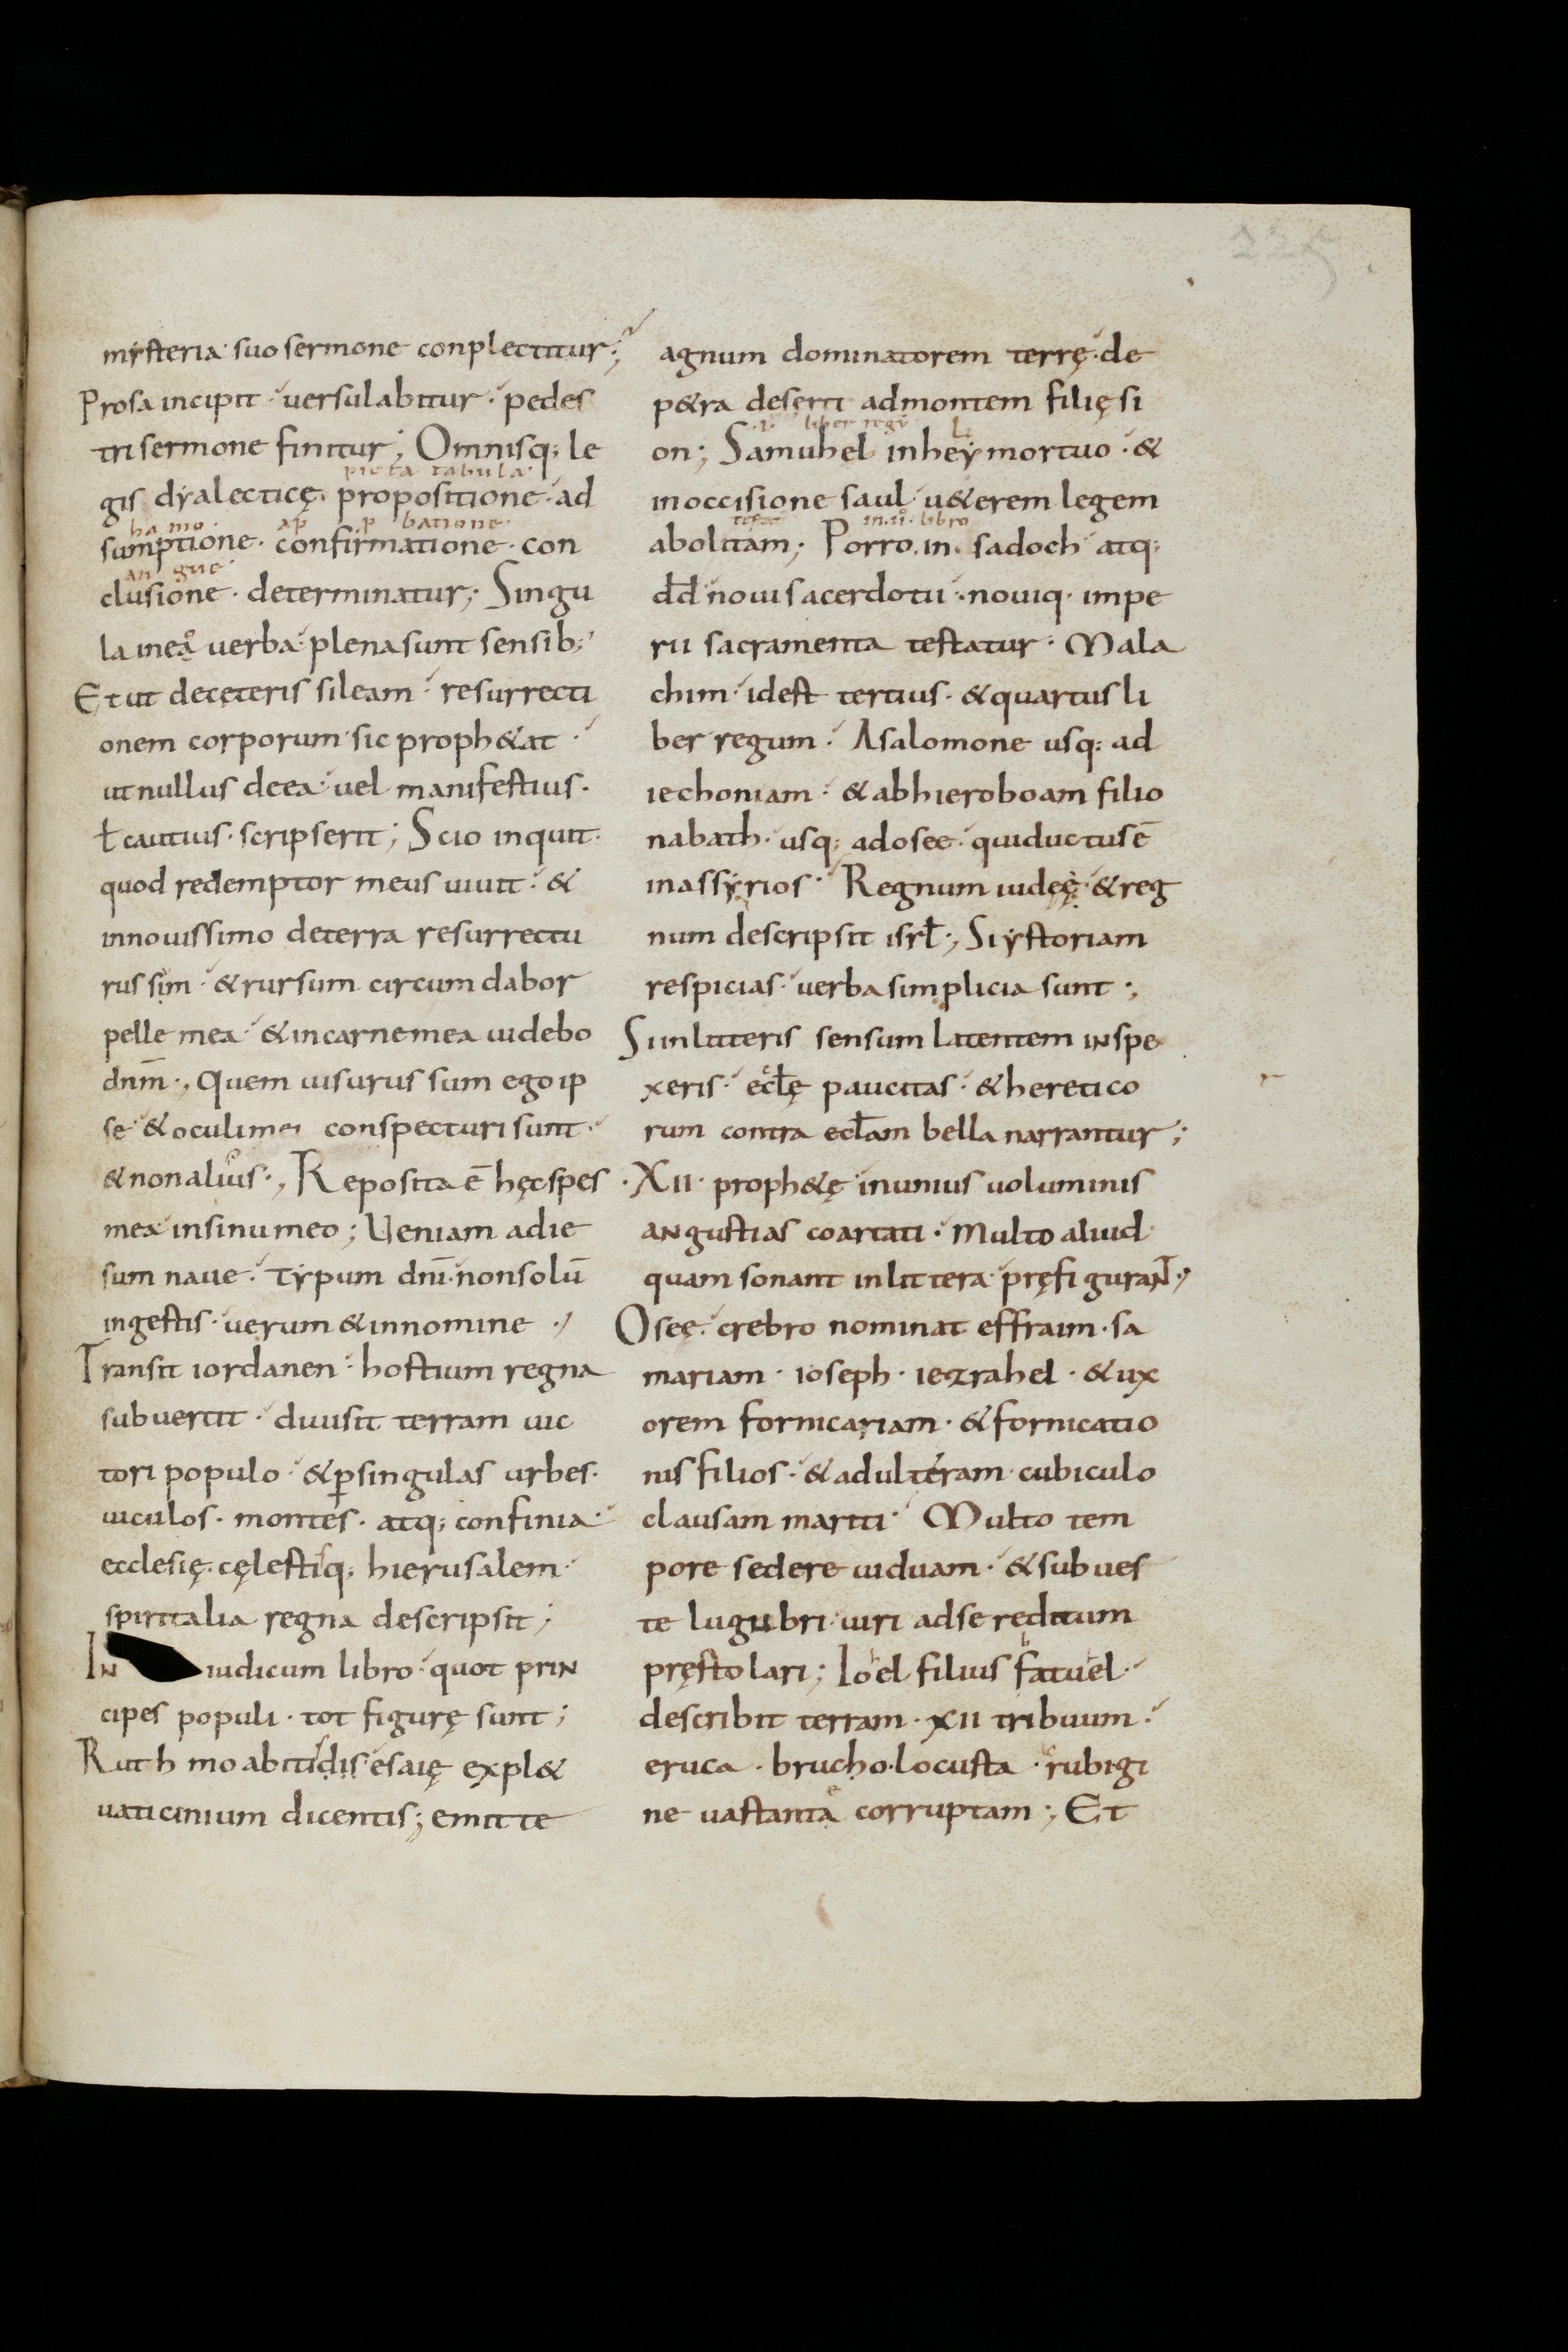 mysteria suo sermone conplectitur;
Prosa incipit· versu labitur· pedes
tri sermone finitur; Omnisq; le
picta tabula
gis dyalecticę· propositione· ad
ha mo· ap p batione·
sumptione· confirmatione· con
an gue
clusione· determinatur; Singu
la in ea verba plena sunt sensib;
Et ut de ceteris sileam· resurrecti
onem corporum sic proph&at·
ut nullus de ea vel manifestius·
ł cautius· scripserit; Scio inquit·
quod redemptor meus uiuit· &
in nouissimo de terra resurrectu
rus sim· & rursum circumdabor
pelle mea· & in carne mea uidebo
dnm̄·, Quem uisurus sum ego ip
se & oculi mei conspecturi sunt·
& non alius·, Reposita ē hęc spes
mea in sinu meo; Ueniam ad ie
sum naue· Typum dnī· non solū
in gestis· uerum & in nomine·,
Transit iordanen· hostium regna
subuertit· diuisit terram uic
tori populo· & ꝑ singulas urbes·
uiculos· montes· atq; confinia·
ecclesię· cęlestisq; hierusalem·
spiritalia regna descripsit;
IN iudicum libro· quot priN
cipes populi· tot figurę sunt;
Ruth moabitidis esaię expl&
uaticinium dicentis; emitte
agnum dominatorem terrę· de
p&ra deserti ad montem filię si
liber regū
on; Samuhel in hely mortuo· &
in occisione saul u&erem legem
in·ii· libro
abolitam; Porro· in· sadoch atq;
dd̄ noui sacerdotii· nouiq· impe
rii sacramenta testatur· Mala
chim· id est tertius· & quartus li
ber regum· A salomone usq; ad
iechoniam· & ab hieroboam filio
nabath· usq; ad osee· qui ductus ē
in assyrios· Regnum iudęę· & reg
num descripsit isrł·, Si ystoriam
respicias· uerba simplicia sunt·,
Si in litteris sensum latentem iNspe
xeris· ecłę paucitas· & heretico
rum contra ecłam bella narrantur;
·XII· proph&ę in unius uoluminis
aNgustias coartati· Multo aliud
quam sonant in littera pręfiguraNT·,
Oseę· crebro nominat effraim· sa
mariam· ioseph· iezrahel· & ux
orem fornicariam· & fornicatio
nis filios· & adulteram cubiculo
clausam mariti· Multo tem
pore sedere uiduam· & sub ues
te lugubri uiri ad se reditum
pręstolari; Iohel filius fatuel·
describit terram· XII tribuum·
eruca· brucho· locusta· rubigi
ne uastante corruptam·, Et